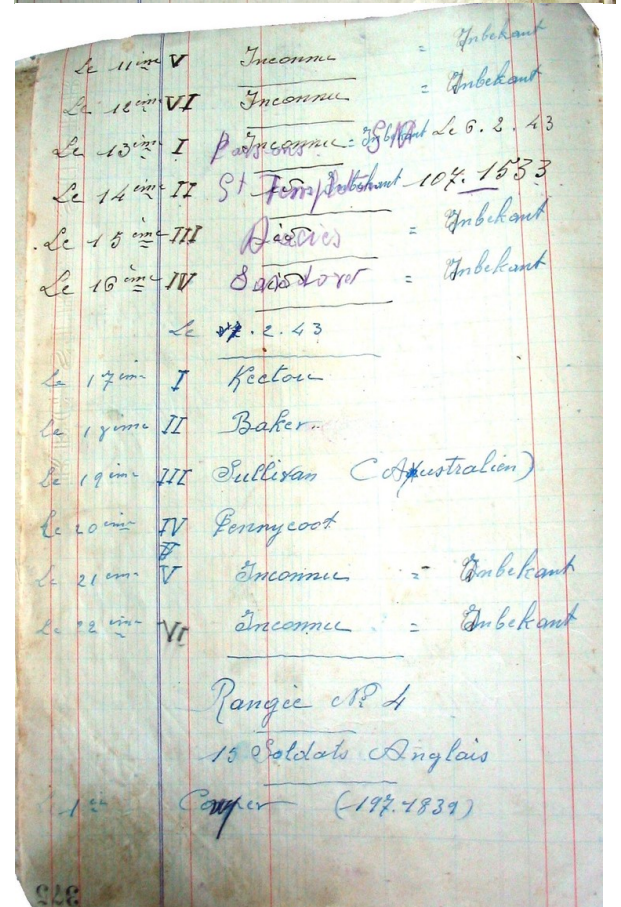 Le 11ème V Inconnu = Inbekant
Le 12ème VI Inconnu = Inbekant
Le 13ème I Inconnu = Inbekant Le 6.2.43
Le 14ème II St Inbekant 107.1533
Le 15ème III = Inbekant
Le 16ème IV = Inbekant
Le .2.43
Le 17ème I Keeton
Le 18ème II Baker
Le 19ème III Sullivan (Australien)
Le 20ème IV Pennycoot
Le 21ème V Inconnu = Inbekant
Le 22ème VI Inconnu = Inbekant
Rangée No 4
15 Soldats Anglais
1er (-197.1839)
375